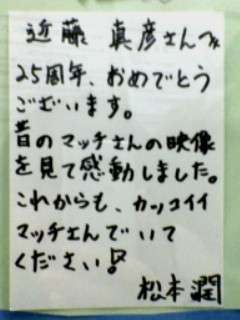 近藤 真彦さん
25周年、おめでとう
ございます。
昔のマッチさんの映像
を見て感動しました。
これからも、カッコイイ
マッチさんでいて
ください!
松本 潤